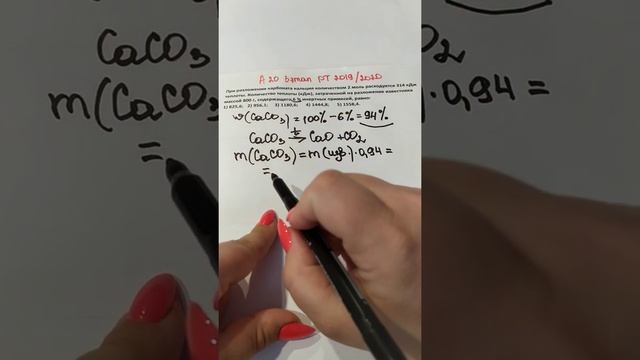 A 20 Ⅲ этап РТ 2019/2020
При разложении карбоната кальция количеством 2 моль расходуется 314 кДж
теплоты. Количество теплоты (кДж), затраченной на разложение известняка
массой 800 г, содержащего 6 % инертных примесей, равно:
1) 825,6; 2) 956,1; 3) 1180,6; 4) 1444,8; 5) 1558,4.
w(CaCO3) = 100% - 6% = 94%
CaCO3 t→ CaO + CO2
m(CaCO3) = m(изв.)·0,94 =
=